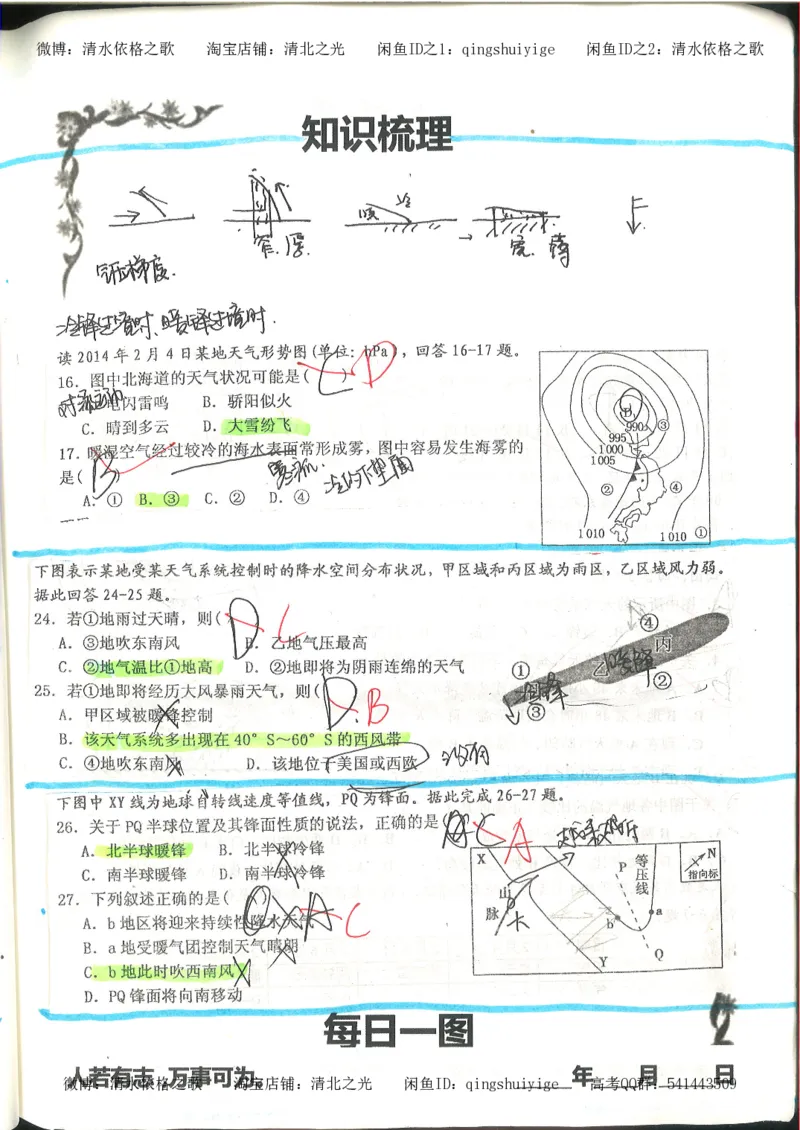 微博：清水依格之歌 淘宝店铺：清北之光 闲鱼ID之1：qingshuiyige 闲鱼ID之2：清水依格之歌
知识梳理
暖 冷
窄.厚. 宽.薄
气压梯度.
冷锋过境时、暖锋过境时.
读2014年2月4日某地天气形势图(单位：hPa)，回答16-17题。
16. 图中北海道的天气状况可能是( C ) D
A. 电闪雷鸣 B. 骄阳似火
C. 晴到多云 D. 大雪纷飞
17. 暖湿空气经过较冷的海水表面常形成雾，图中容易发生海雾的
是( B
A. ① B. ③ C. ② D. ④
990 ③
995
1000
1005
② ④
1010 1010 ①
下图表示某地受某天气系统控制时的降水空间分布状况，甲区域和丙区域为雨区，乙区域风力弱。
据此回答24-25题。
24. 若①地雨过天晴，则( D C
A. ③地吹东南风 B. 乙地气压最高
C. ②地气温比①地高 D. ②地即将为阴雨连绵的天气
25. 若①地即将经历大风暴雨天气，则( D B
A. 甲区域被暖锋控制
B. 该天气系统多出现在40°S～60°S的西风带
C. ④地吹东南风 D. 该地位于美国或西欧 没有
④
丙
① 乙 暖锋
②
③
下图中XY线为地球自转线速度等值线，PQ为锋面。据此完成26-27题。
26. 关于PQ半球位置及其锋面性质的说法，正确的是( C A
A. 北半球暖锋 B. 北半球冷锋
C. 南半球暖锋 D. 南半球冷锋
27. 下列叙述正确的是( A C
A. b地区将迎来持续性降水天气
B. a地受暖气团控制天气晴朗
C. b地此时吹西南风
D. PQ锋面将向南移动
X P 等压线 N
指向标
山脉
a
b
Y Q
每日一图
2
人若有志，万事可为。 年 月 日
微博：清水依格之歌 淘宝店铺：清北之光 闲鱼ID：qingshuiyige 高考QQ群：541443509